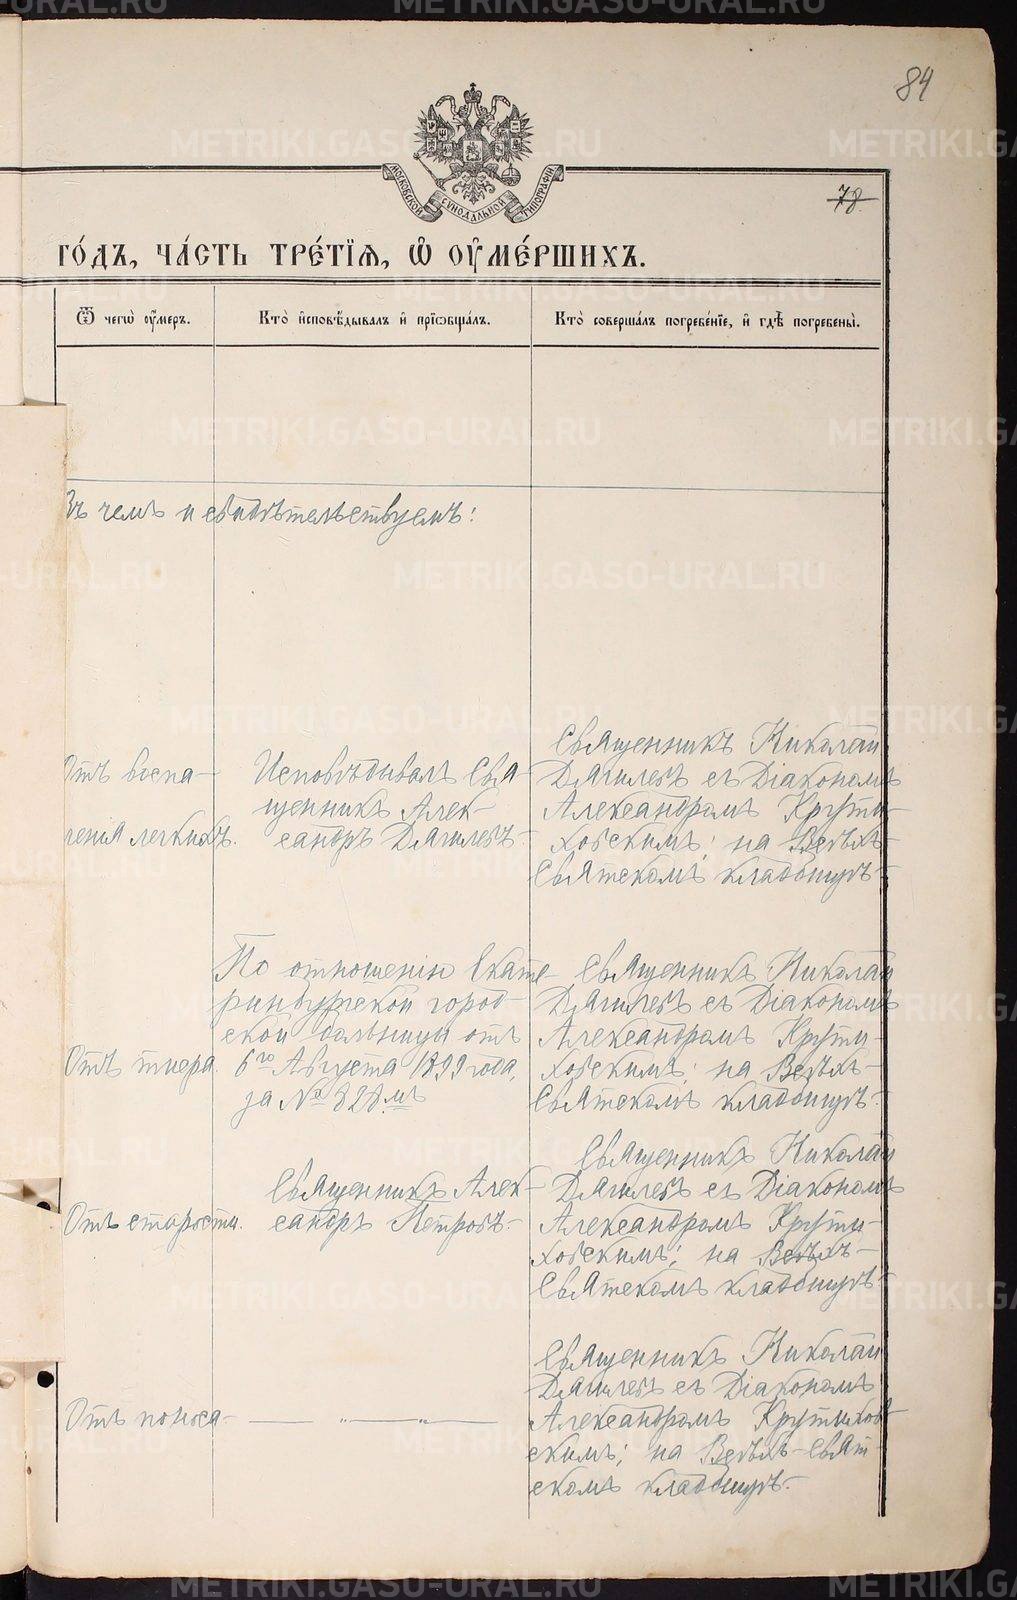 84
78
МОСКОВСКОЙ СѴНОДАЛЬНОЙ ТИПОГРАФІИ
ГО́ДЪ, ЧА́СТЬ ТРЕ́ТЇѦ, Ѡ҆ ОУ҆МЕ́РШИХЪ.
Ѿ чегѡ̀ оу҆́меръ.
Кто̀ и҆сповѣ́дывалъ и҆ прїѡбща́лъ.
Кто̀ соверша́лъ погребе́нїе, и҆ гдѣ̀ погребены̀.
Въ чемъ и свидѣтельствуемъ:
Отъ воспа-
ленія легкихъ.
Исповѣдывалъ Свя-
щенникъ Алек-
сандръ Дягилевъ-
Священникъ Николай
Дягилевъ съ Діакономъ
Александромъ Крути-
ховскимъ; на Всѣхъ-
Святскомъ кладбищѣ-
Отъ тифа.
По отношенію Екате-
ринбургской город-
ской больницы отъ
6го Августа 1899 года,
за № 828мъ
Священникъ Николай
Дягилевъ съ Діакономъ
Александромъ Крути-
ховскимъ; на Всѣхъ-
Святскомъ кладбищѣ-
Отъ старости.
Священникъ Алек-
сандръ Петровъ-
Священникъ Николай
Дягилевъ съ Діакономъ
Александромъ Крути-
ховскимъ; на Всѣхъ-
Святскомъ кладбищѣ-
Отъ поноса-
— „ — „ —
Священникъ Николай
Дягилевъ съ Діакономъ
Александромъ Крутихов-
скимъ; на Всѣхъ-Свят-
скомъ кладбищѣ.-
METRIKI.GASO-URAL.RU